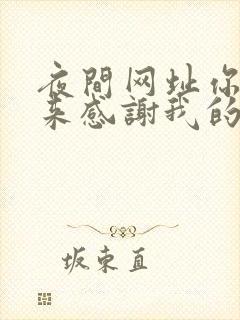 夜間网址你
来感謝我的
坂東直